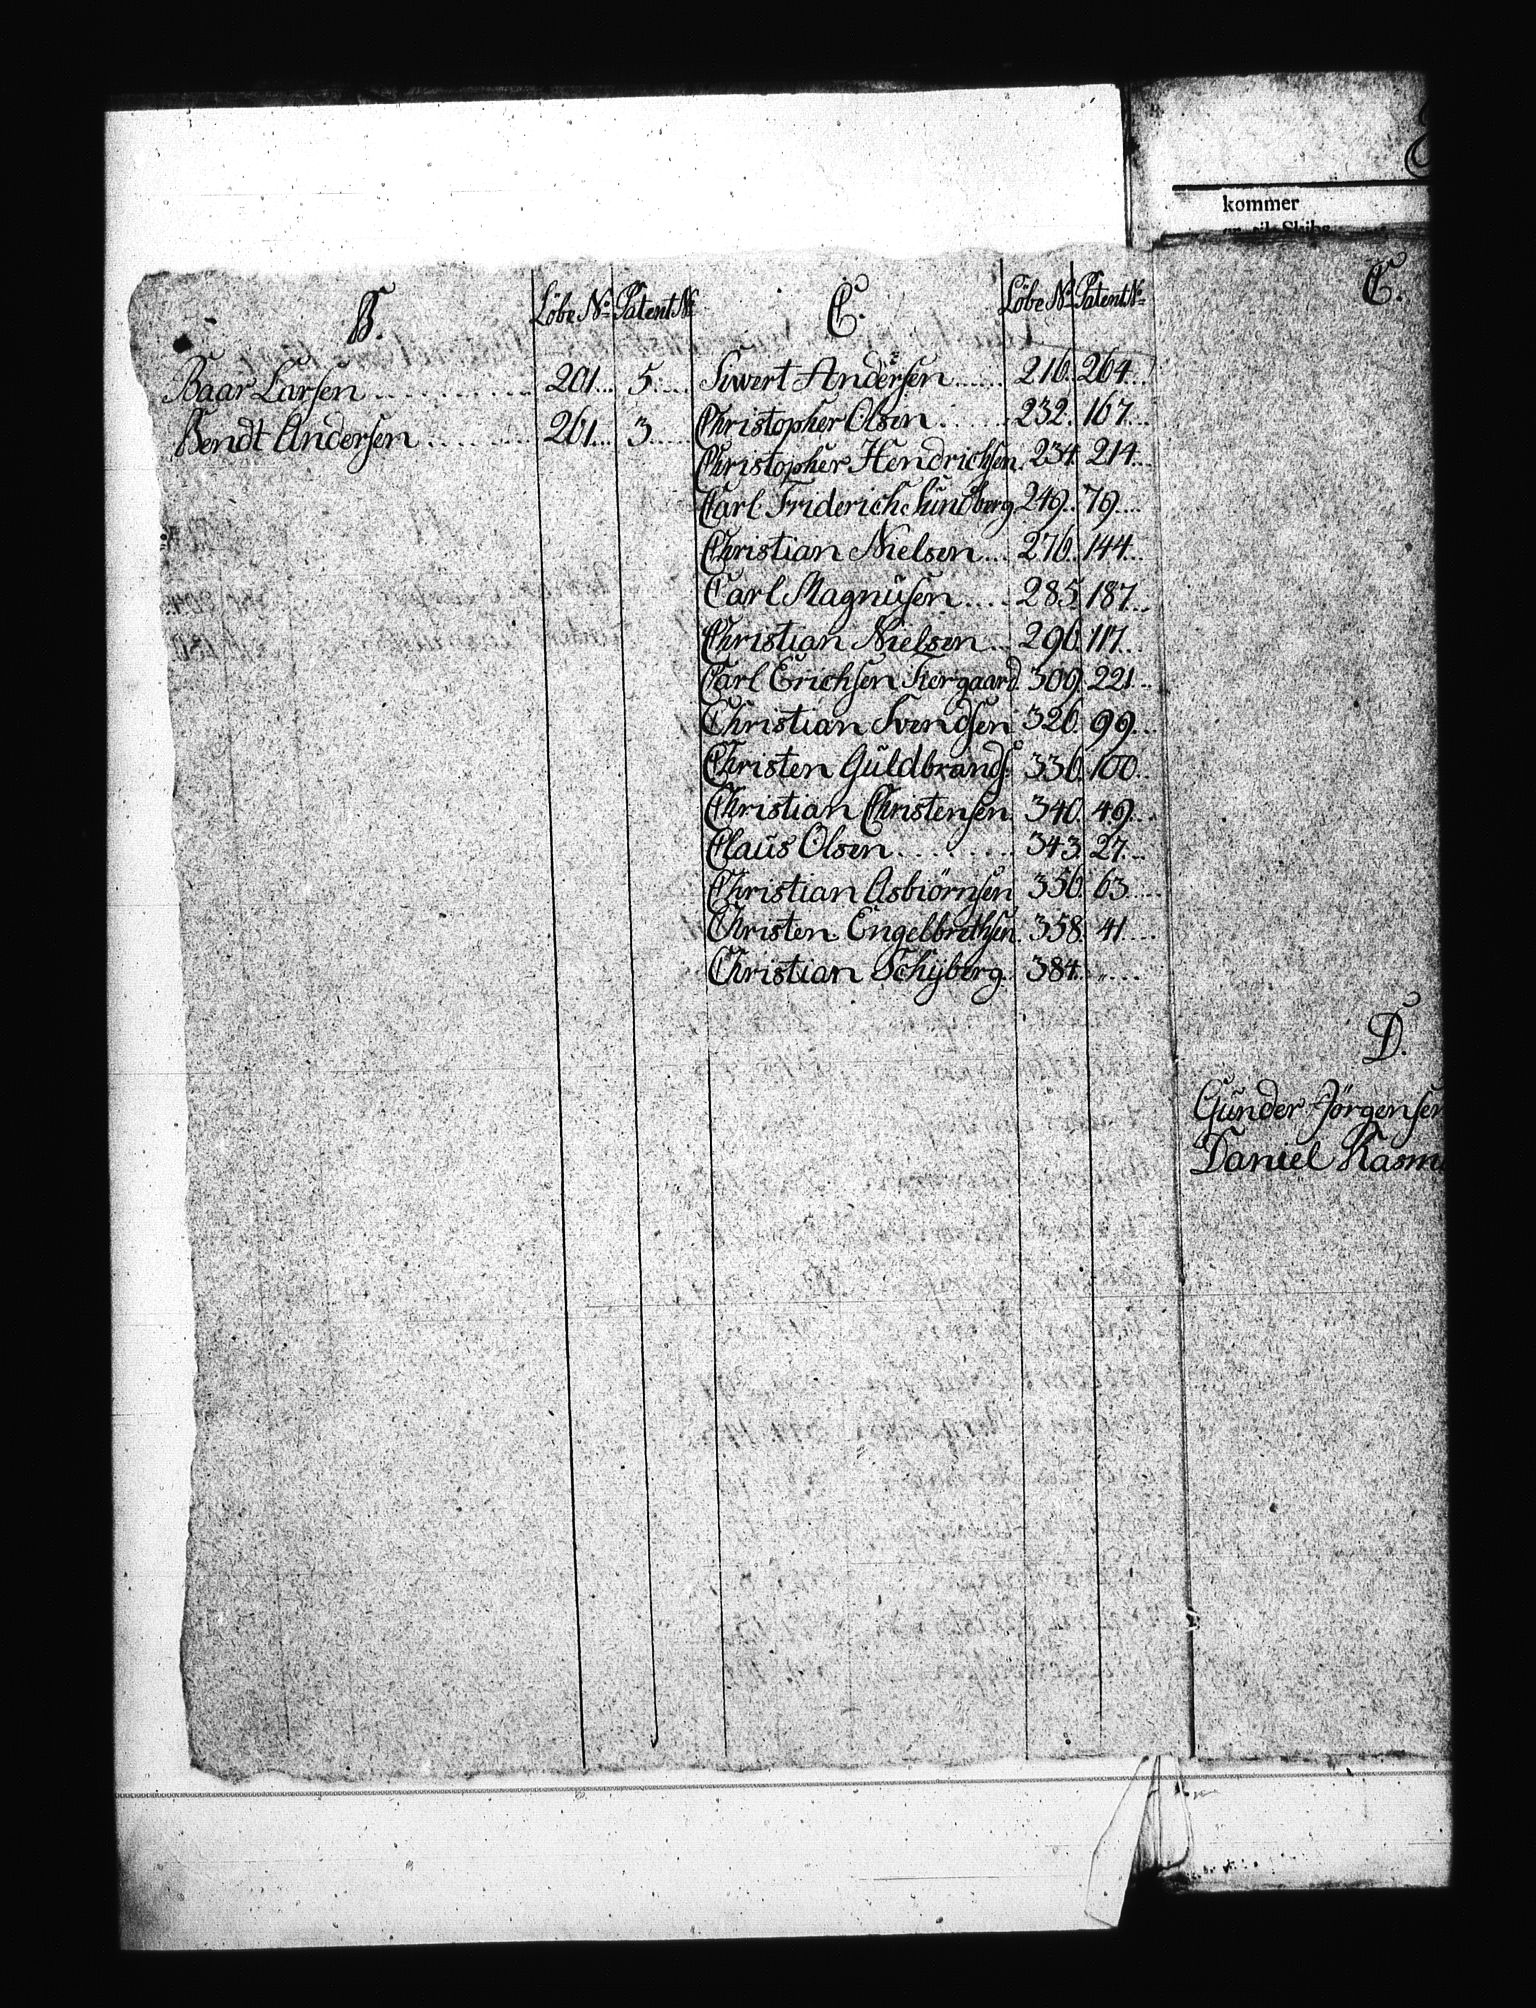 B. Löbe No. Patent No.
Baar Larsen 201. 5.
Bendt Andersen 261. 3.
C. Löbe No. Patent No.
Siwert Andersen 216. 264.
Christopher Olsen 232. 167.
Christopher Hendrichsen. 234. 214.
Carl Friderich Lundberg 249. 79.
Christian Nielsen 276. 144.
Carl Magnüsen 285. 187.
Christian Nielsen 296. 117.
Carl Erichsen 309. 221.
Christian Svendsen 326. 99.
Christen Guldbrands. 336. 100.
Christian Christensen. 340. 49.
Claüs Olsen 343. 27.
Christian Asbiörnsen 356. 63.
Christen Engelbrethsen. 358. 41.
Christian Schijberg. 384. „
kommer
C.
D.
Günder Jörgensen
Daniel Rasmu